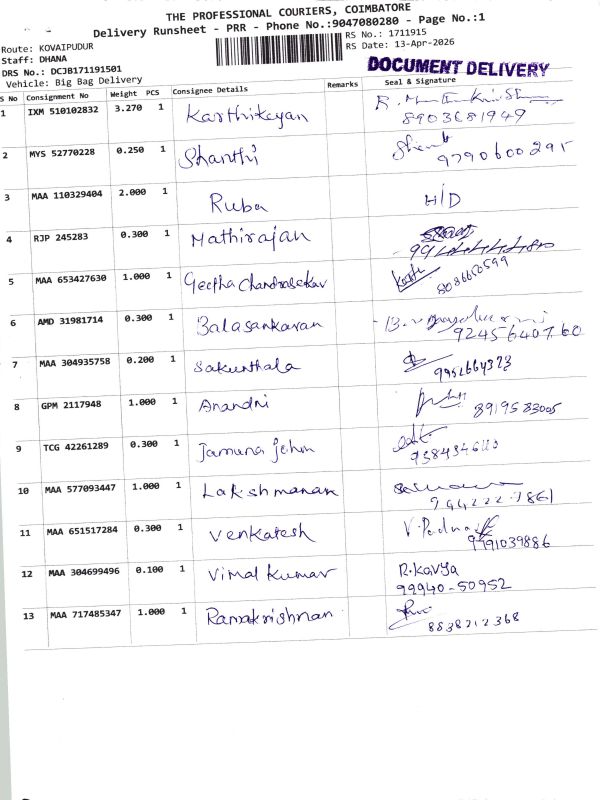 THE PROFESSIONAL COURIERS, COIMBATORE
Delivery Runsheet - PRR - Phone No.:9047080280 - Page No.:1
Route: KOVAIPUDUR
RS No.: 1711915
Staff: DHANA
RS Date: 13-Apr-2026
DRS No.: DCJB171191501
DOCUMENT DELIVERY
Vehicle: Big Bag Delivery
S No Consignment No Weight PCS Consignee Details Remarks Seal & Signature
1 IXM 510102832 3.270 1 Karthikeyan
8903681949
2 MYS 52770228 0.250 1 Shanthi
9790600295
3 MAA 110329404 2.000 1 Ruba H/D
4 RJP 245283 0.300 1 Mathirajan
5 MAA 653427630 1.000 1 Geetha Chandrasekar
8086660599
6 AMD 31981714 0.300 1 Balasankaran
9245640760
7 MAA 304935758 0.200 1 Sakunthala
9952664323
8 GPM 2117948 1.000 1 Anandhi
8919583005
9 TCG 42261289 0.300 1 Jamuna john
10 MAA 577093447 1.000 1 Lakshmanan
11 MAA 651517284 0.300 1 Venkatesh V. Padma
9791039886
12 MAA 304699496 0.100 1 Vimal Kumar R.Kavya
99940-50952
13 MAA 717485347 1.000 1 Ramakrishnan
8838212368